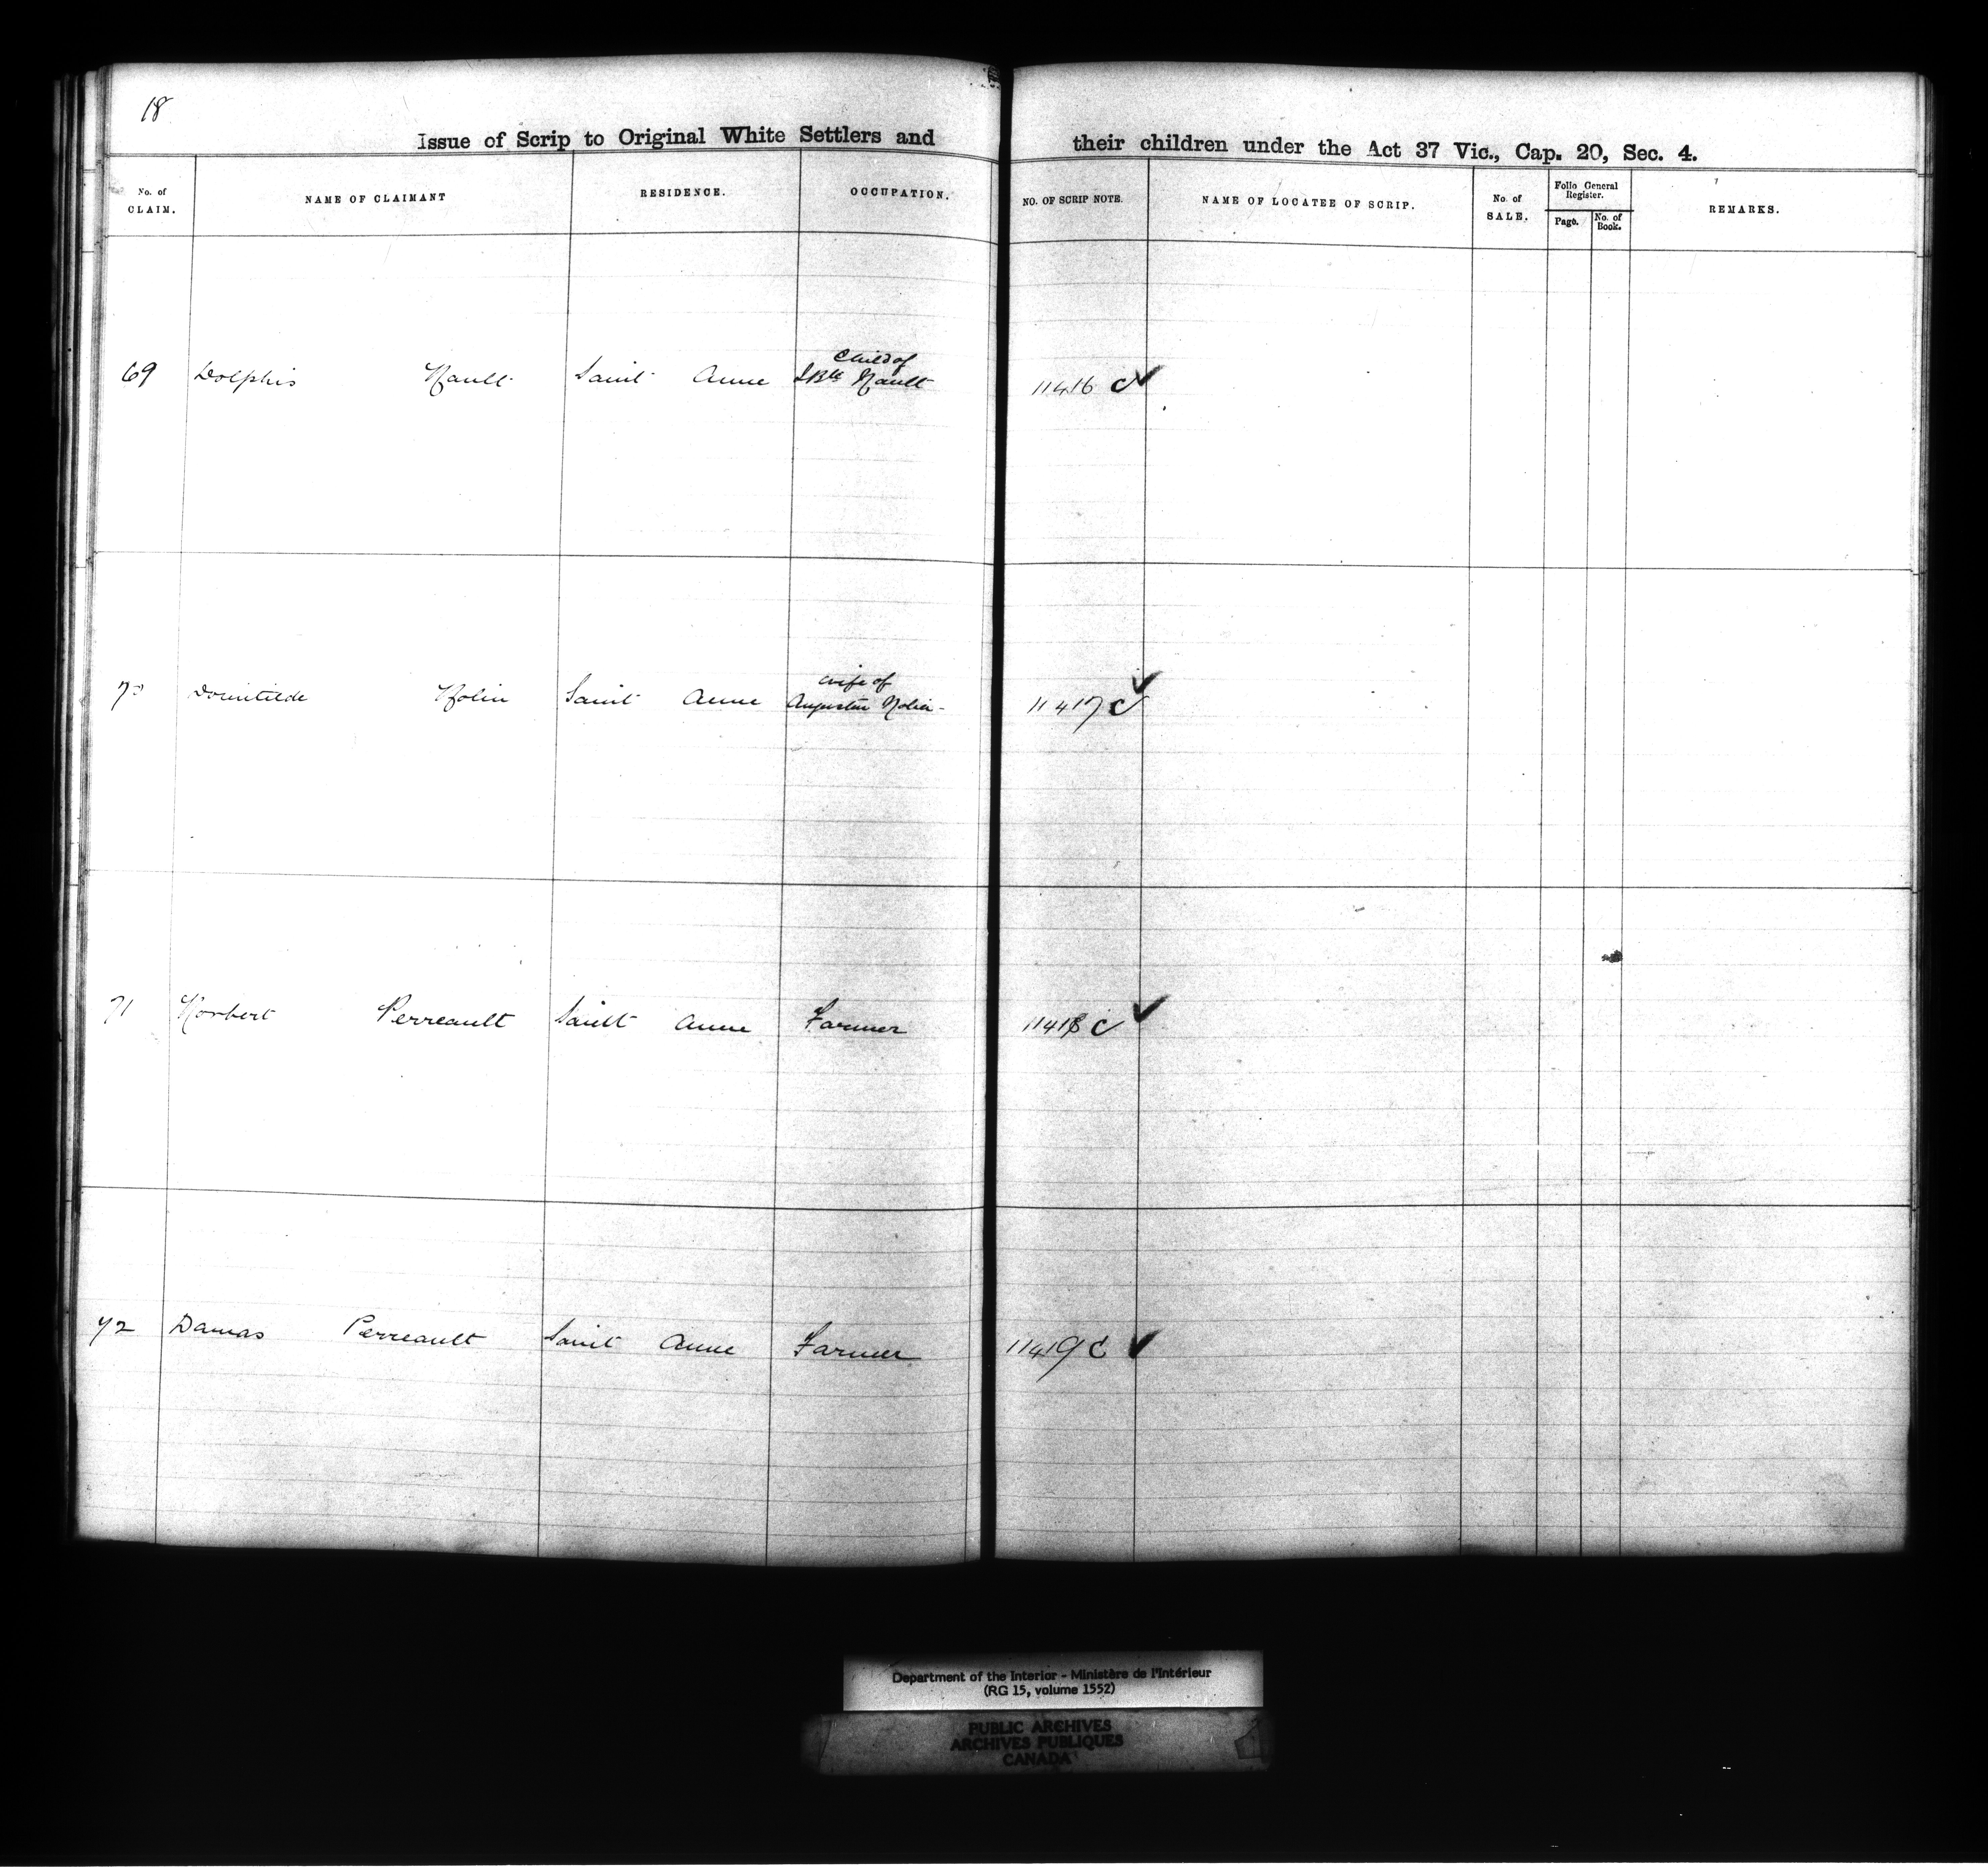 18
Issue of Scrip to Original White Settlers and their children under the Act 37 Vic., Cap. 20, Sec. 4.
No. of CLAIM. NAME OF CLAIMANT RESIDENCE. OCCUPATION. NO. OF SCRIP NOTE. NAME OF LOCATEE OF SCRIP. No. of SALE. Folio General Register. Page. No. of Book. REMARKS.
Child of
69 Dolphis Nault Saint Anne JBte Nault 11416 C ✓
wife of
70 Domitilde Nolin Saint Anne Augustin Nolin 11417 C ✓
71 Norbert Perreault Saint Anne Farmer 11418 C ✓
72 Damas Perreault Saint Anne Farmer 11419 C ✓
Department of the Interior - Ministère de l'Intérieur
(RG 15, volume 1552)
PUBLIC ARCHIVES
ARCHIVES PUBLIQUES
CANADA